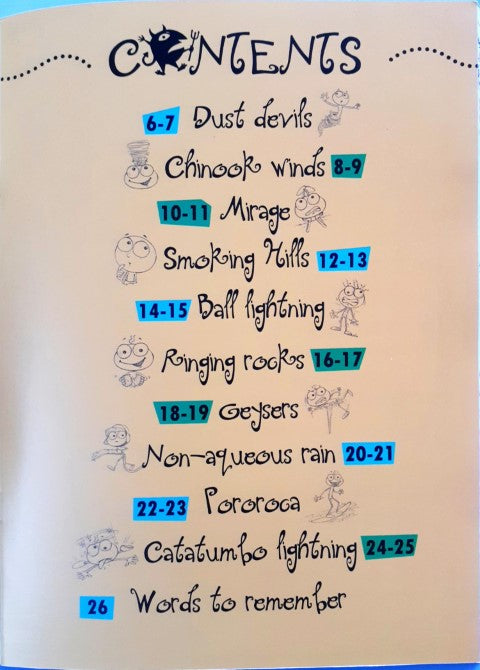 CONTENTS
6-7 Dust devils
Chinook winds 8-9
10-11 Mirage
Smoking Hills 12-13
14-15 Ball lightning
Ringing rocks 16-17
18-19 Geysers
Non-aqueous rain 20-21
22-23 Pororoca
Catatumbo lightning 24-25
26 Words to remember